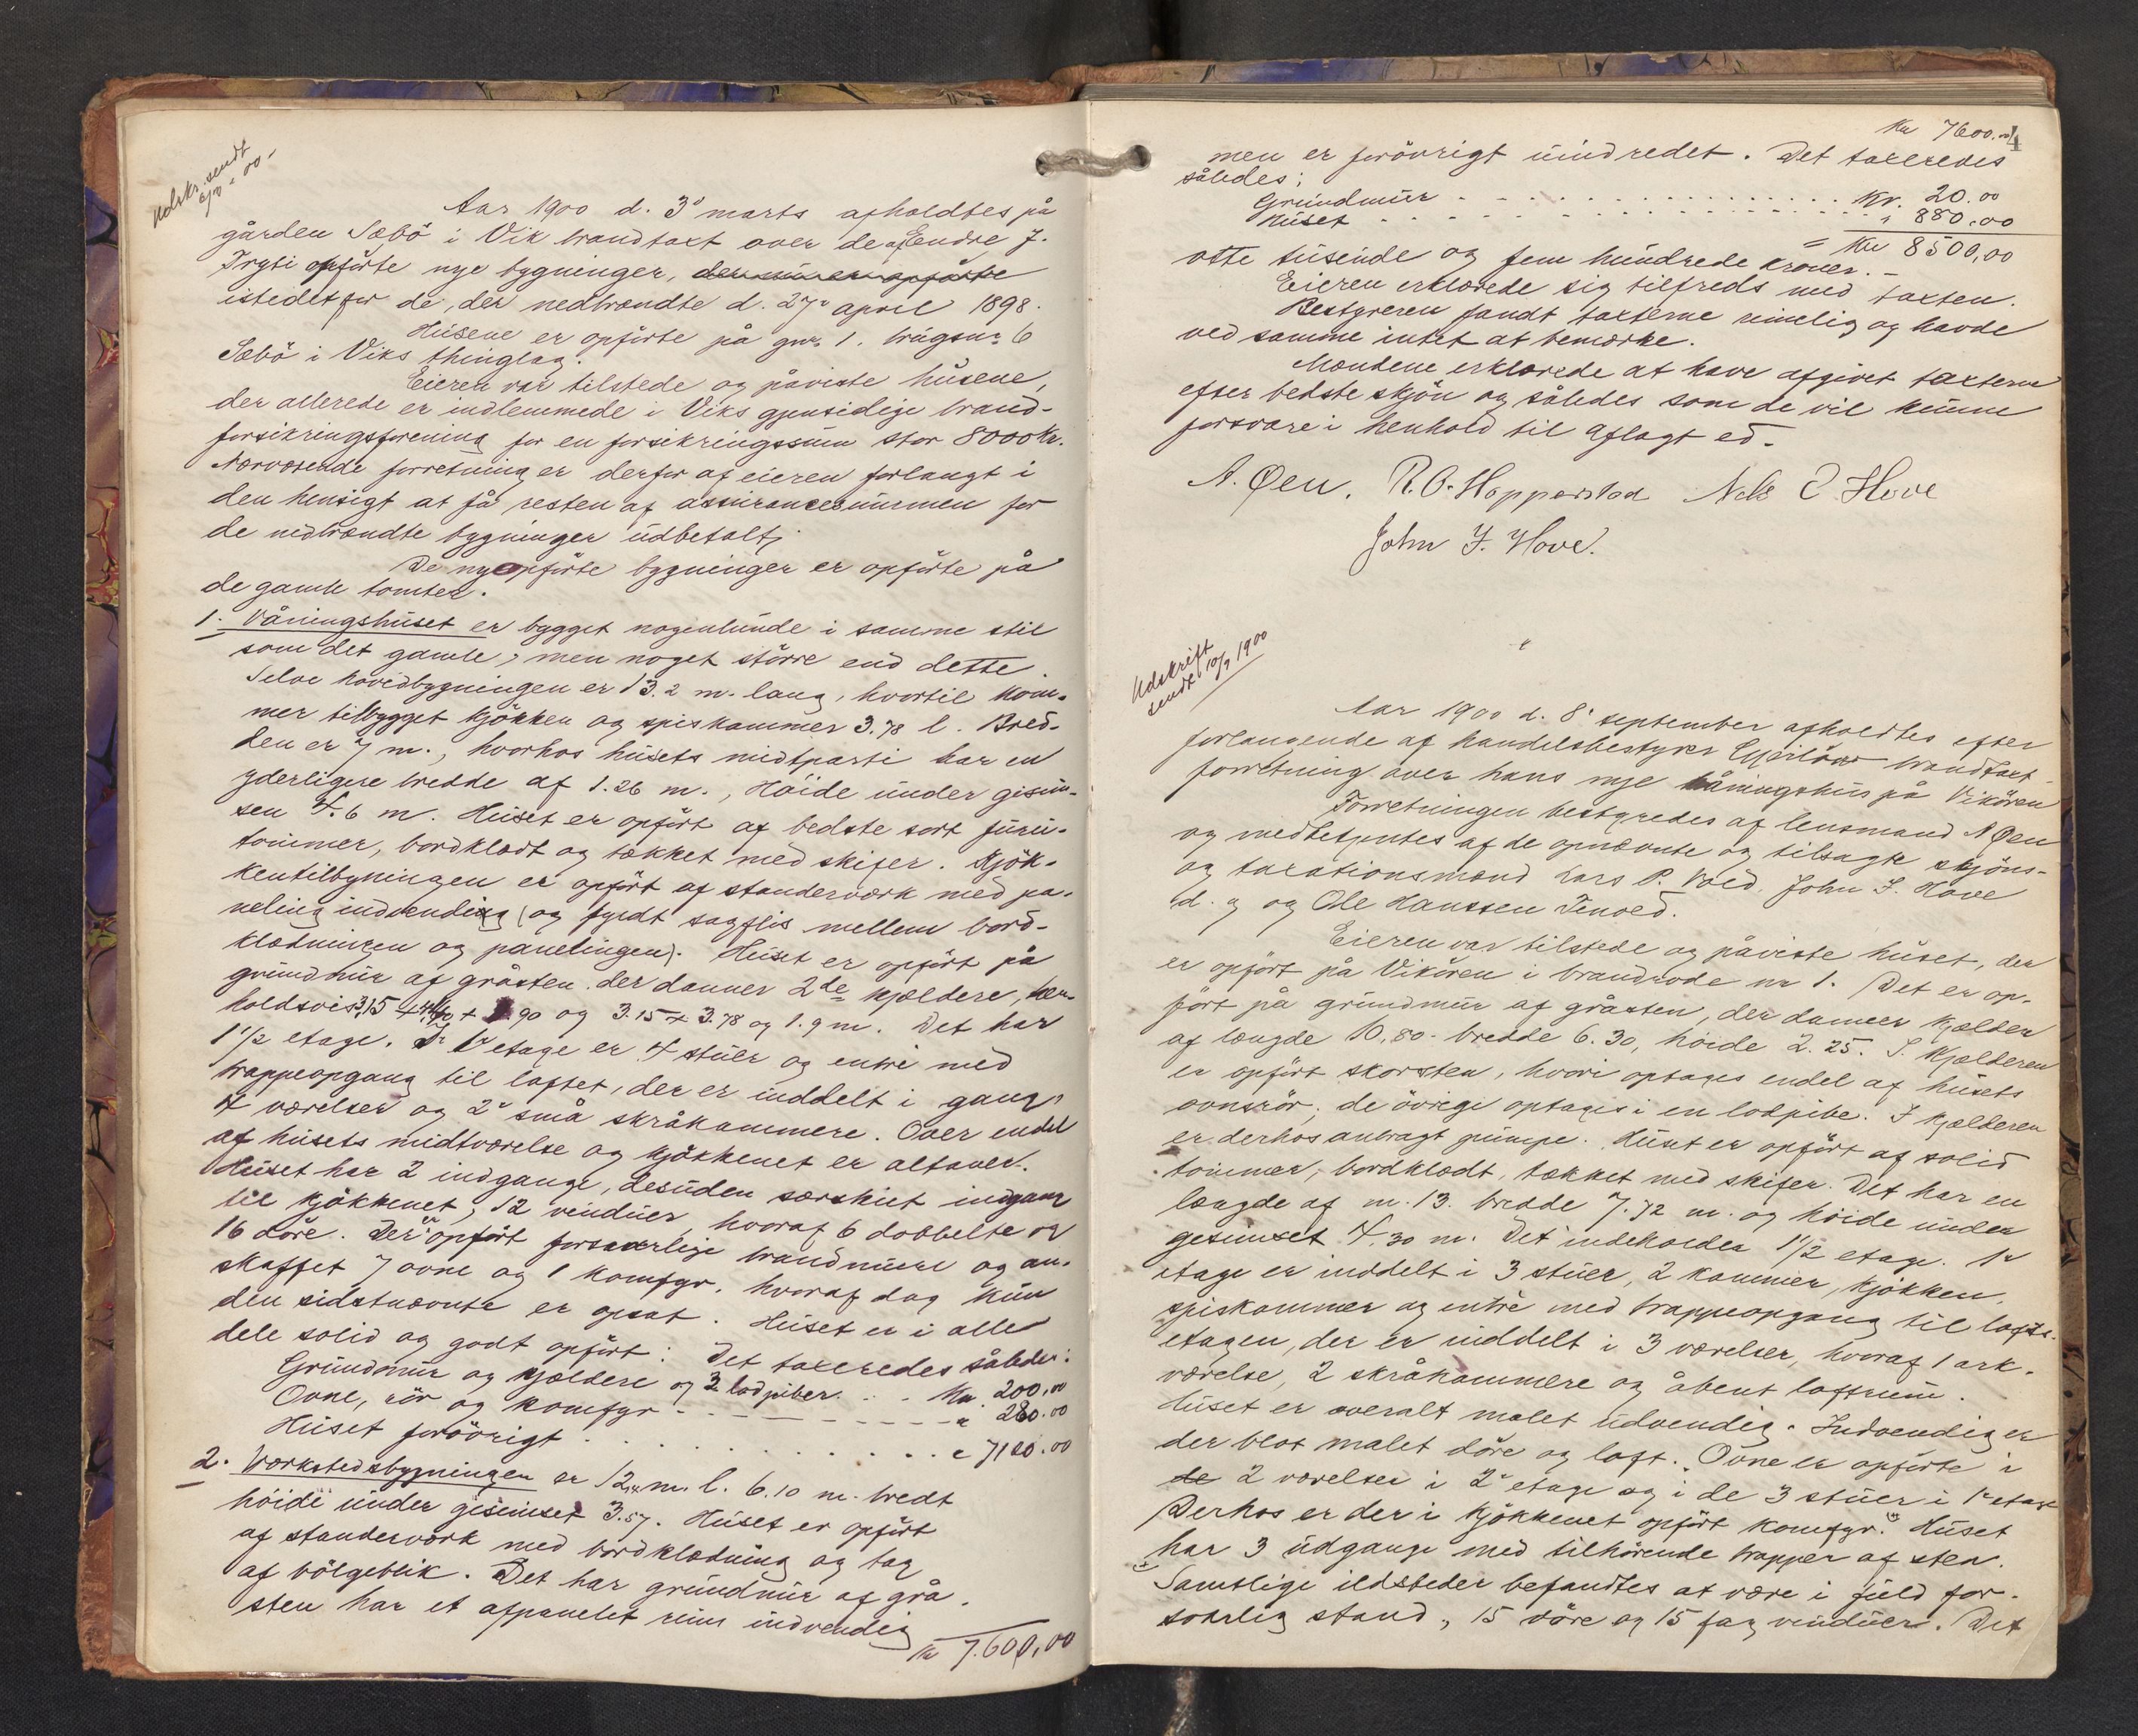 Udskr. sendt
6/3 - 00 -
Aar 1900 d. 3' marts afholdtes på
gården Sæbö i Vik brandtaxt over de af Endre J.
Tryti opförte nye bygninger, der nu er opförte
istedetfor de, der nedbrændte d. 27' april 1898.
Husene er opförte på gnr. 1. brugsnr 6
Sæbö i Viks thinglag.
Eieren var tilstede og påviste husene,
der allerede er indlemmede i Viks gjensidige brand-
forsikringsforening for en forsikringssum stor 8000 Kr.
Nærværende forretning er derfor af eieren forlangt i
den hensigt at få resten af assurancesummen for
de nedbrændte bygninger udbetalt.
De nyopförte bygninger er opförte på
de gamle tomter.
1. Våningshuset er bygget nogenlunde i samme stil
som det gamle, men noget större end dette.
Selve hovedbygningen er 13.2 m. lang, hvortil kom-
mer tilbygget kjökken og spiskammer 3.78 l. Bred-
den er 7 m., hvorhos husets midtparti har en
yderligere bredde af 1.26 m., Höide under gesim-
sen 4.6 m. Huset er opfört af bedste sort furu-
tömmer, bordklædt og tækket med skifer. Kjök-
kentilbygningen er opfört af standerværk med pa-
neling indvendig (og fyldt sagflis mellem bord-
klædningen og panelingen). Huset er opfört på
grundmur af gråsten der danner 2de kjældere, hen-
holdsvis 3.15 + 4.40 + 1.90 og 3.15 + 3.78 og 1.9 m. Det har
1 1/2 etage. I 1' etage er 4 stuer og entré med
trappeopgang til loftet, der er inddelt i gang,
4 værelser og 2' små skråkammere. Over endel
af husets midtværelse og kjökkenet er altaner.
Huset har 2 indgange, desuden særskilt indgang
til kjökkenet, 12 vinduer, hvoraf 6 dobbelte og
16 döre. Der er opfört forsvarlige brandmure og an-
skaffet 7 ovne og 1 komfyr, hvoraf dog kun
den sidstnævnte er opsat. Huset er i alle
dele solid og godt opfört. Det taxeredes således:
Grundmur og kjældere og 2 lodpiber . . . Kr. 200.00
Ovne, rör og komfyr - - - - - - " 280.00
Huset forövrigt . . . . . . . . " 7120.00
2. Værkstedsbygningen er 12 m. l. 6.10 m. bredt
höide under gesimset 3.57. Huset er opfört
af standerværk med bordklædning og tag
af bölgeblik. Det har grundmur af grå-
sten har et afpanelet rum indvendig
Kr 7.600,00
Kr 7600.00
4
men er forövrigt uindredet. Det taxeredes
således:
Grundmur - - - - - - Kr. 20.00
Huset - - - - - - " 880.00
= Kr 8500,00
otte tusinde og fem hundrede kroner. -
Eieren erklærede sig tilfreds med taxten.
Bestyreren fandt taxterne rimelig og havde
ved samme intet at bemærke.
Mændene erklærede at have afgivet taxterne
efter bedste skjön og således som de vil kunne
forsvare i henhold til aflagt ed.
A. Øen. R. O. Hopperstad Nils O. Hove
John J. Hove.
Udskrift
sendt 10/9 1900
Aar 1900 d. 8' september afholdtes efter
forlangende af handelsbestyrer brandtaxt-
forretning over hans nye våningshus på Vikören
Forretningen bestyredes af lensmand A Øen
og medbetjentes af de opnævnte og tilsagte skjöns-
og taxationsmænd Lars P. Vold, John J. Hove
d. y og Ole Hanssen Tenold.
Eieren var tilstede og påviste huset, der
er opfört på Vikören i brandrode nr 1. Det er op-
fört på grundmur af gråsten, der danner kjælder
af længde 10,80 - bredde 6.30, höide 2.25. I kjælderen
er opfört skorsten, hvori optages endel af husets
ovnsrör, de övrige optages i en lodpibe. I kjælderen
er derhos anbragt pumpe. Huset er opfört af solid
tömmer, bordklædt, tækket med skifer. Det har en
længde af m. 13. bredde 7.72 m. og höide under
gesimset 4.30 m. Det indeholder 1 1/2 etage. 1'
etage er inddelt i 3 stuer, 2 kammer, kjökken,
spiskammer og entré med trappeopgang til lofts-
etagen, der er inddelt i 3 værelser, hvoraf 1 ark-
værelse, 2 skråkammere og åbent loftrum.
Huset er overalt malet udvendig. Indvendig er
der blot malet döre og loft. Ovne er opförte i
de 2 værelser i 2' etage og i de 3 stuer i 1' etage
Derhos er der i kjökkenet opfört komfyr. Huset
har 3 udgange med tilhörende trapper af sten.
Samtlige ildsteder befandtes at være i fuld for-
svarlig stand, 15 döre og 15 fag vinduer. Det